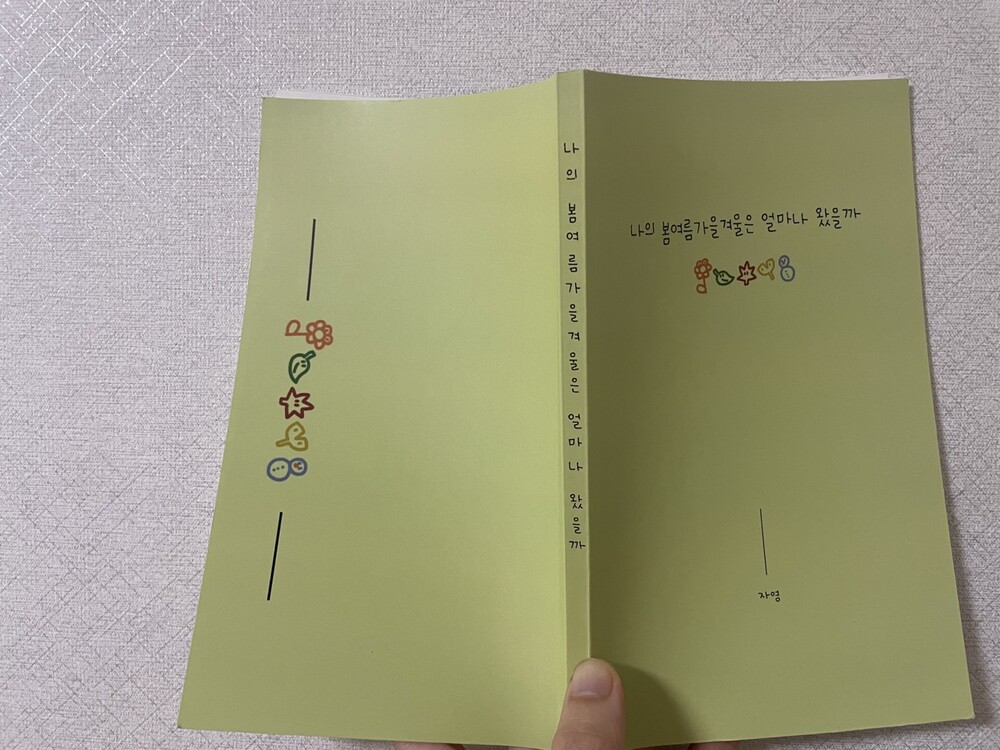 나의 봄여름가을겨울은 얼마나 왔을까
나의 봄여름가을겨울은 얼마나 왔을까
자영